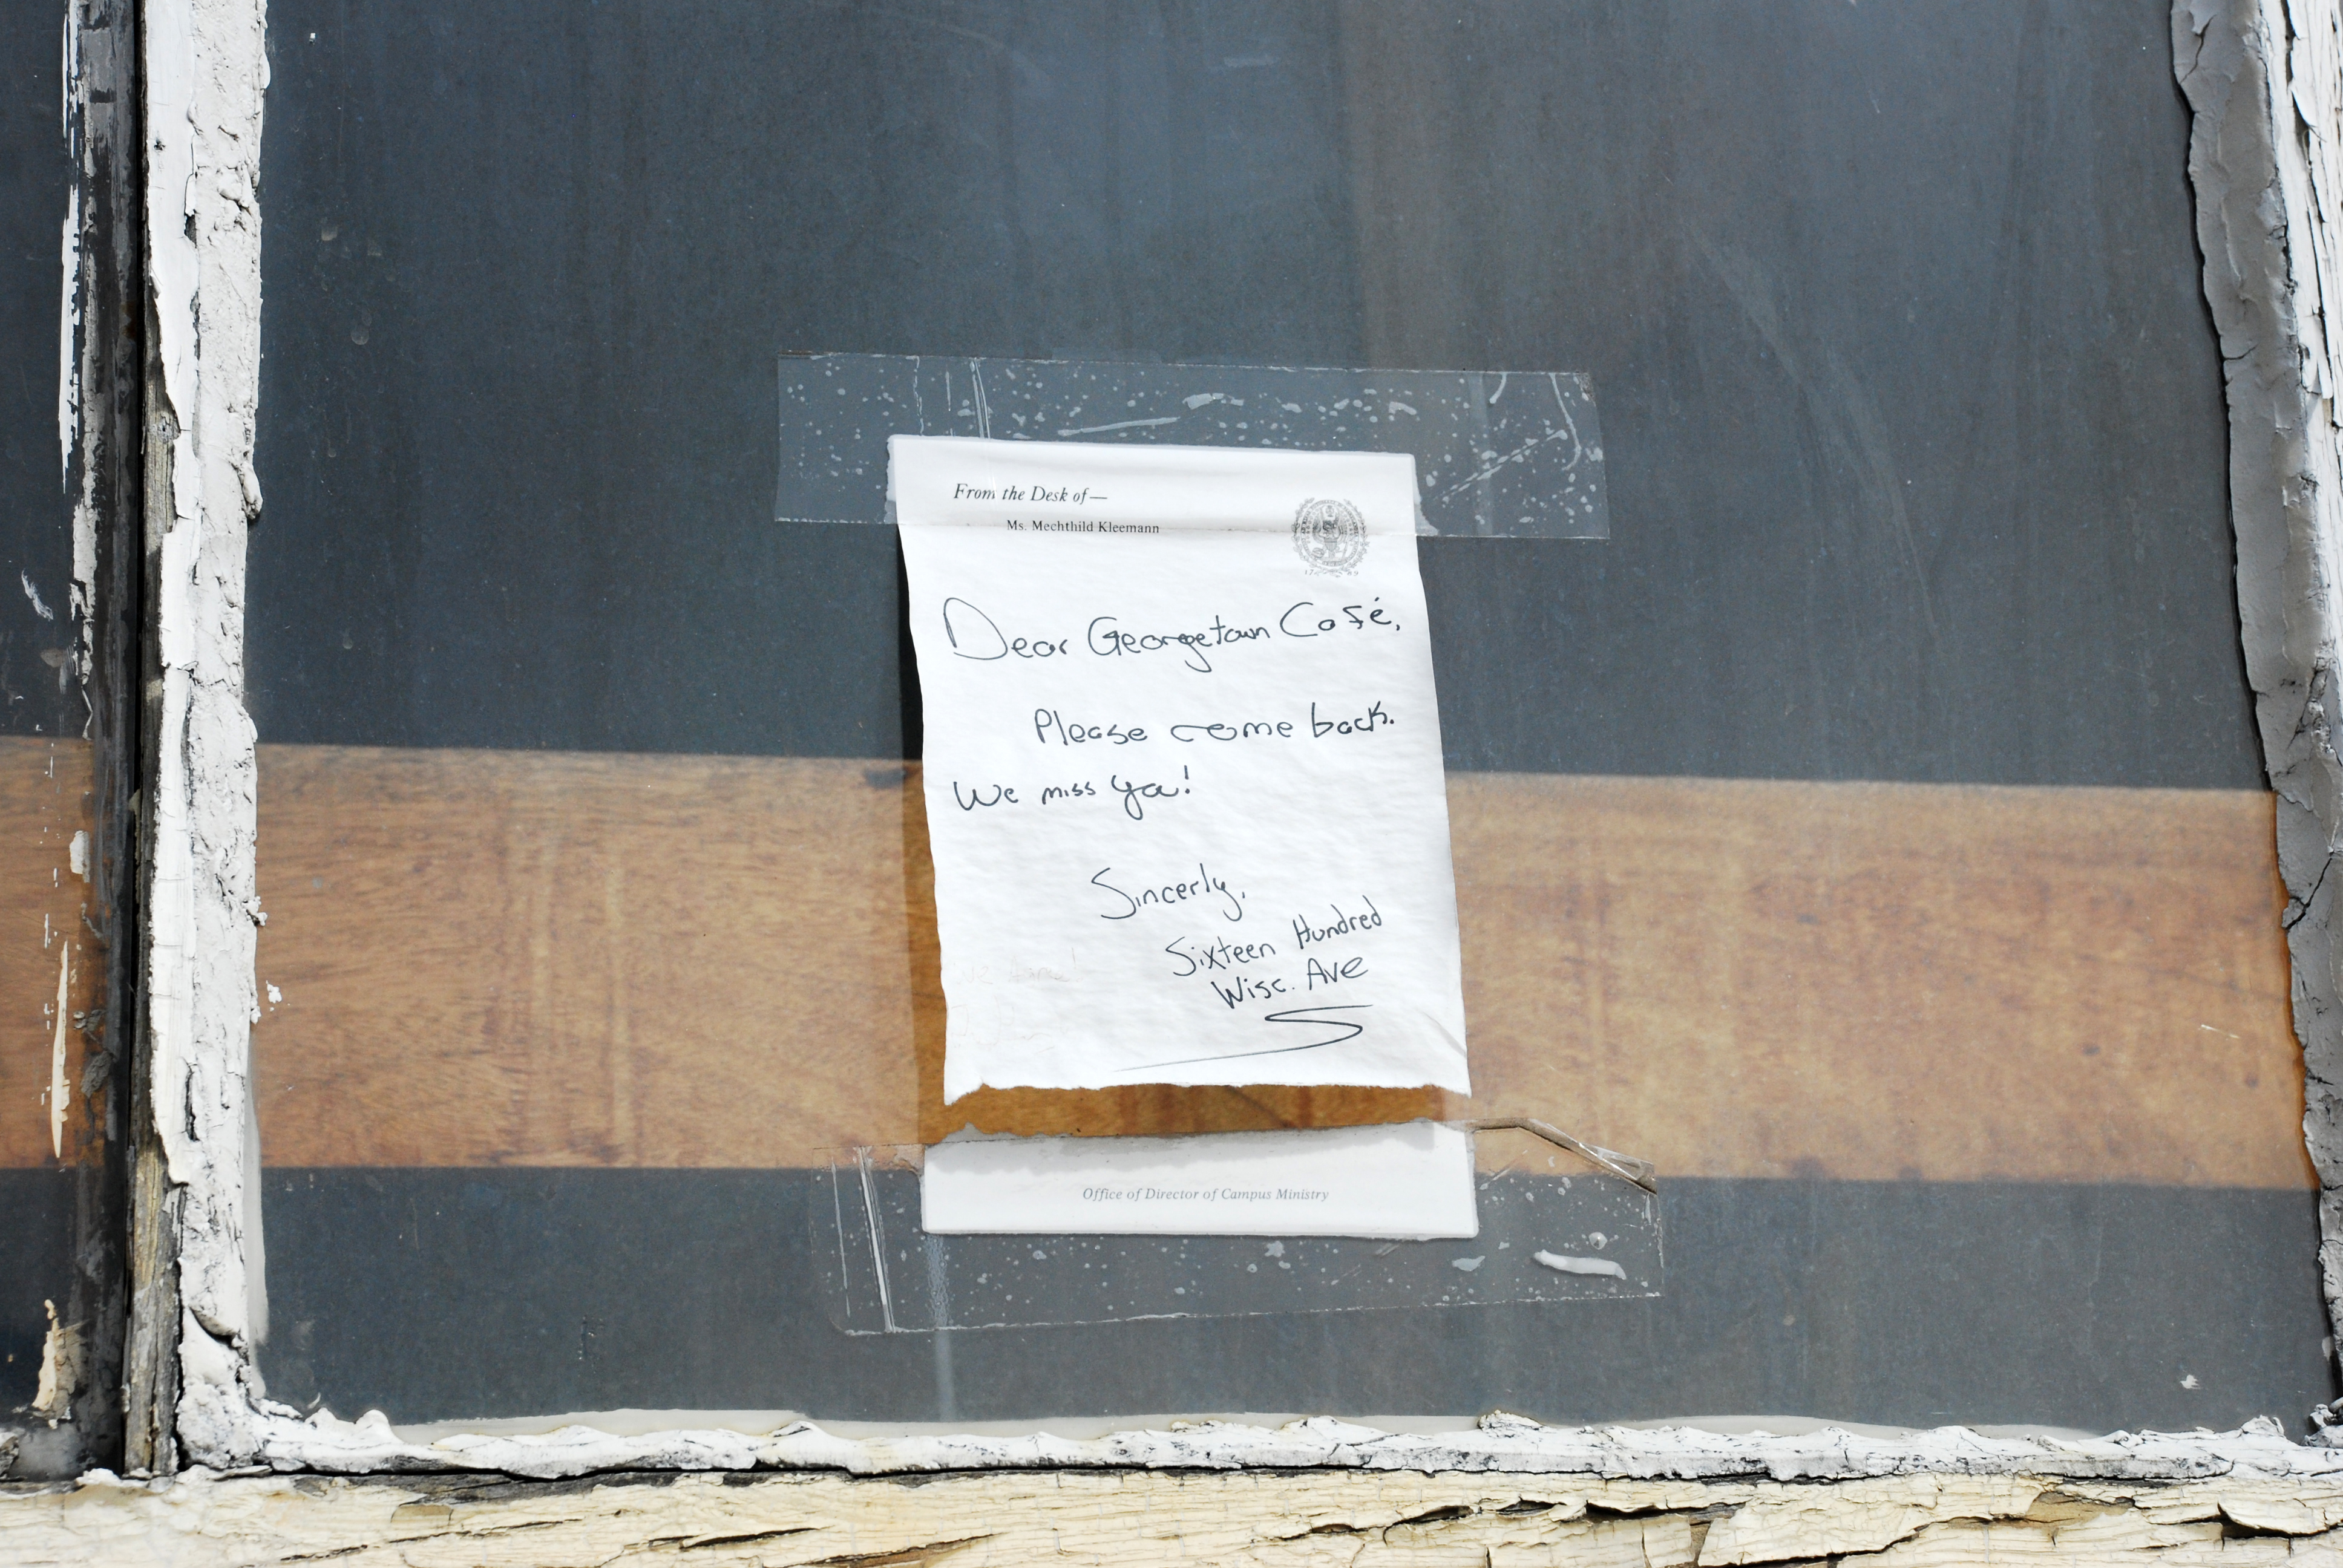 From the Desk of—
Ms. Mechthild Kleemann
Dear Georgetown Café,
Please come back.
We miss ya!
Sincerly,
Sixteen Hundred
Wisc. Ave
Office of Director of Campus Ministry